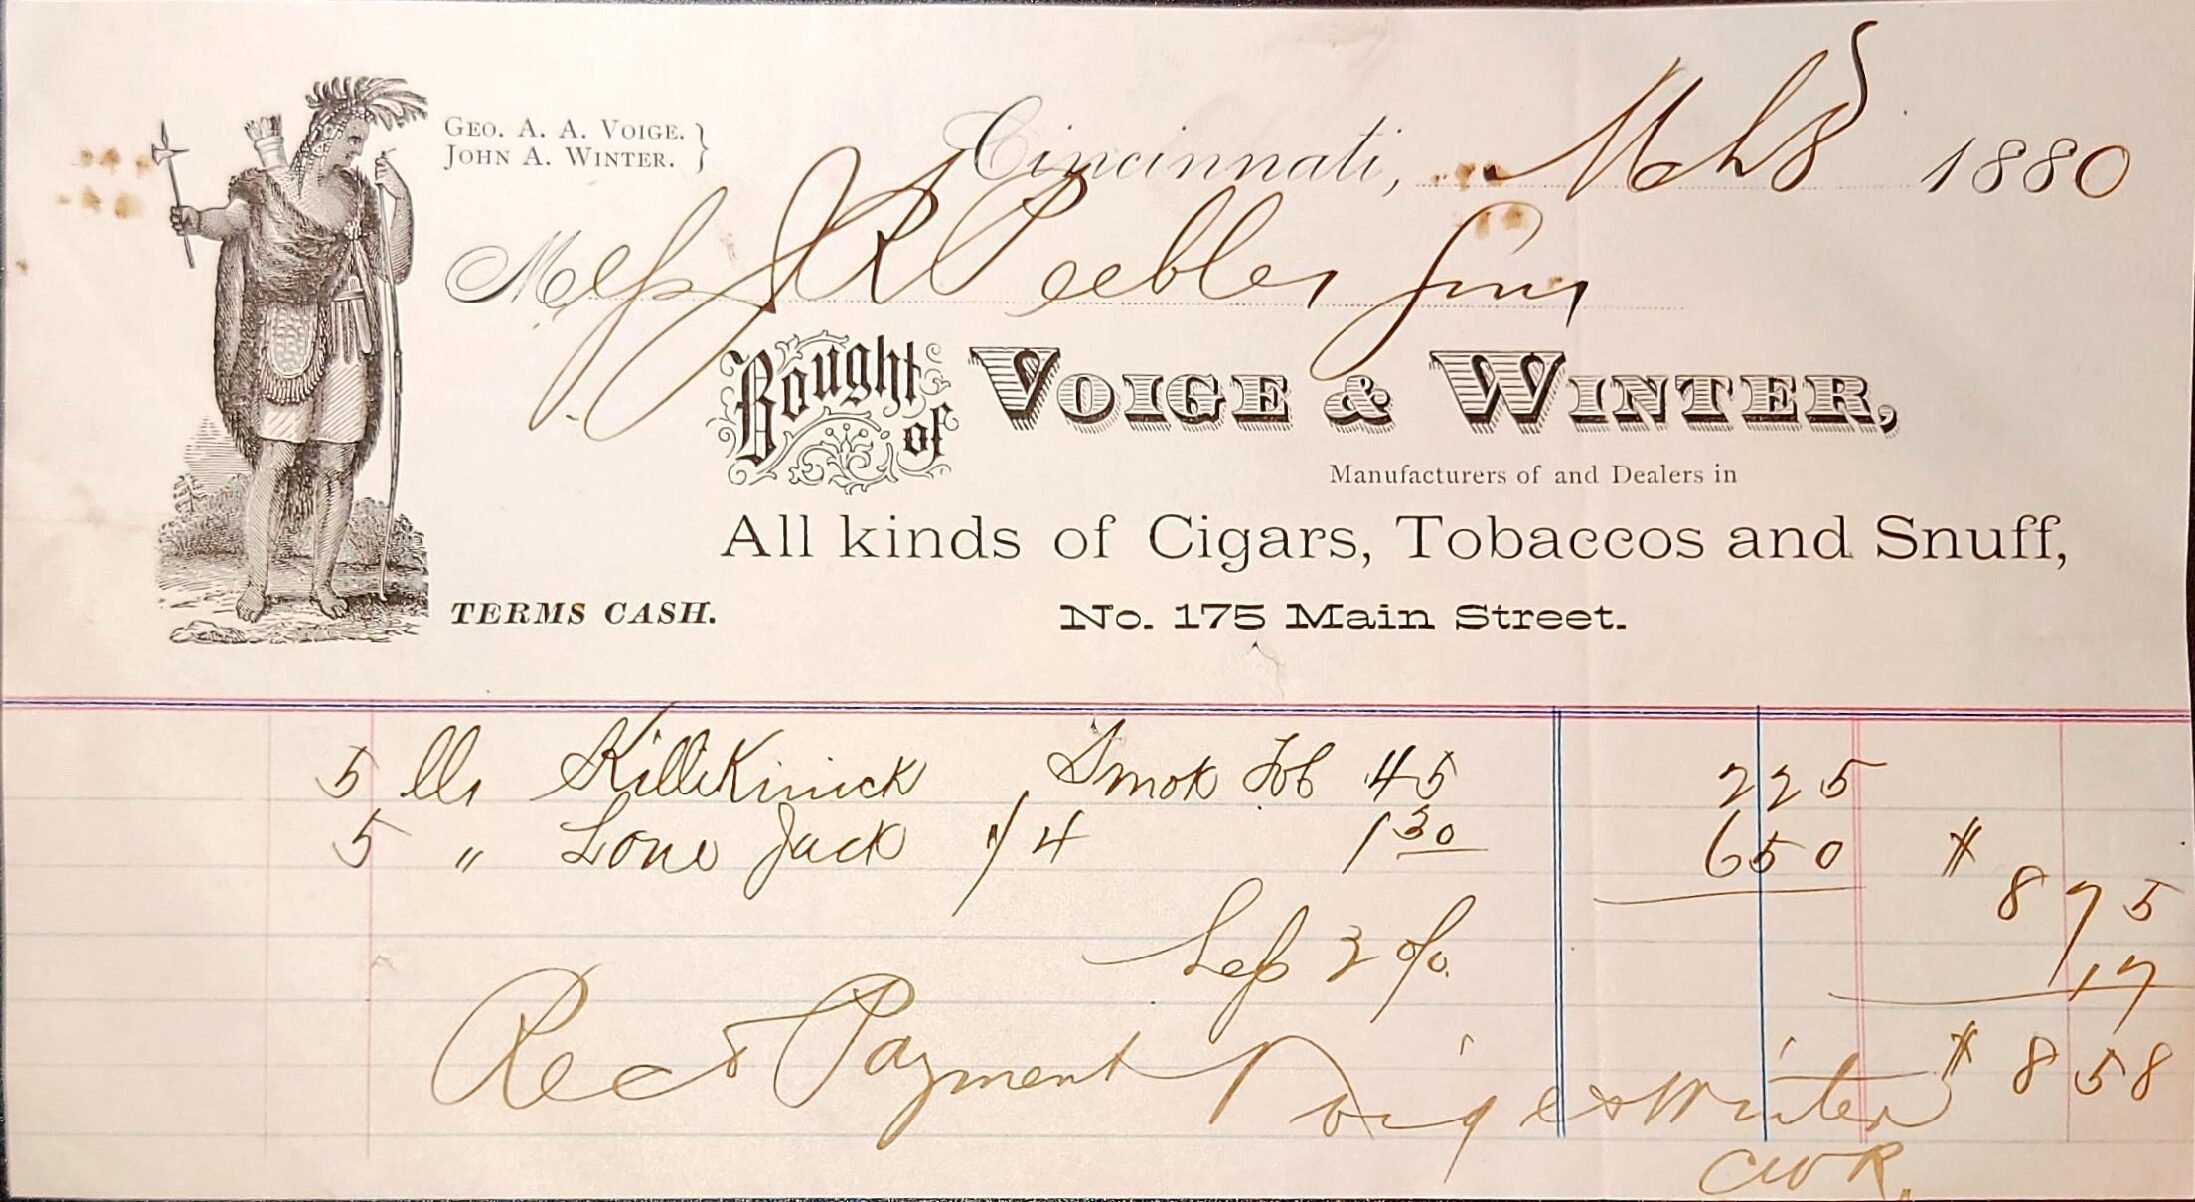 Geo. A. A. Voige. }
John A. Winter. }
Cincinnati, Mch 8 1880
Mess J R Peebles Sons
Bought of Voige & Winter,
Manufacturers of and Dealers in
All kinds of Cigars, Tobaccos and Snuff,
TERMS CASH. No. 175 Main Street.
5 lbs KilliKinick Smok Tob 45 2 25
5 " Lone Jack 1/4 1 30 6 50 $ 8 75
Less 2 % 17
$ 8 58
Rec'd Payment Voige & Winter
CWR.